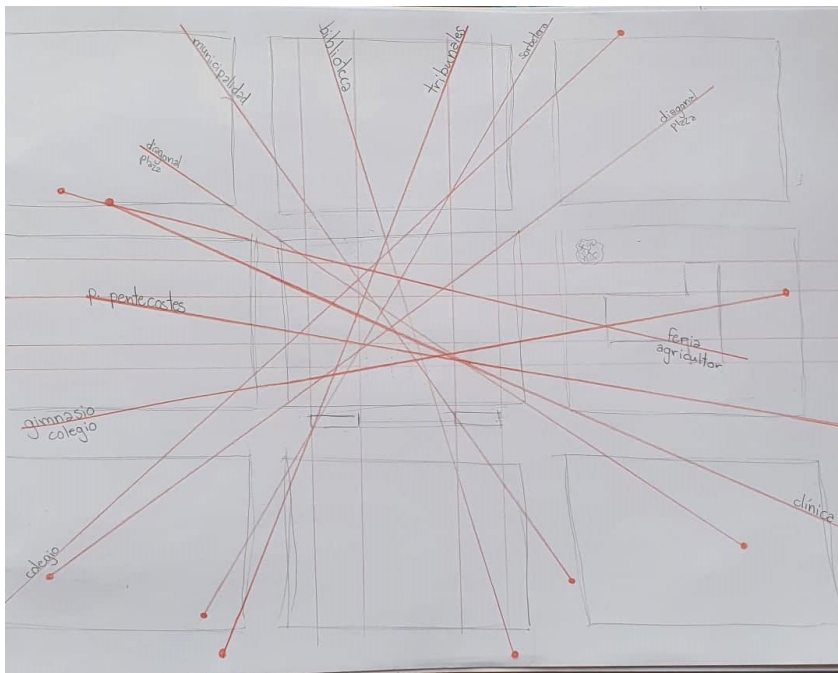 municipalidad
biblioteca
tribunales
sorbetera
diagonal
plaza
diagonal
plaza
p. pentecostes
feria
agricultor
gimnasio
colegio
clínica
colegio